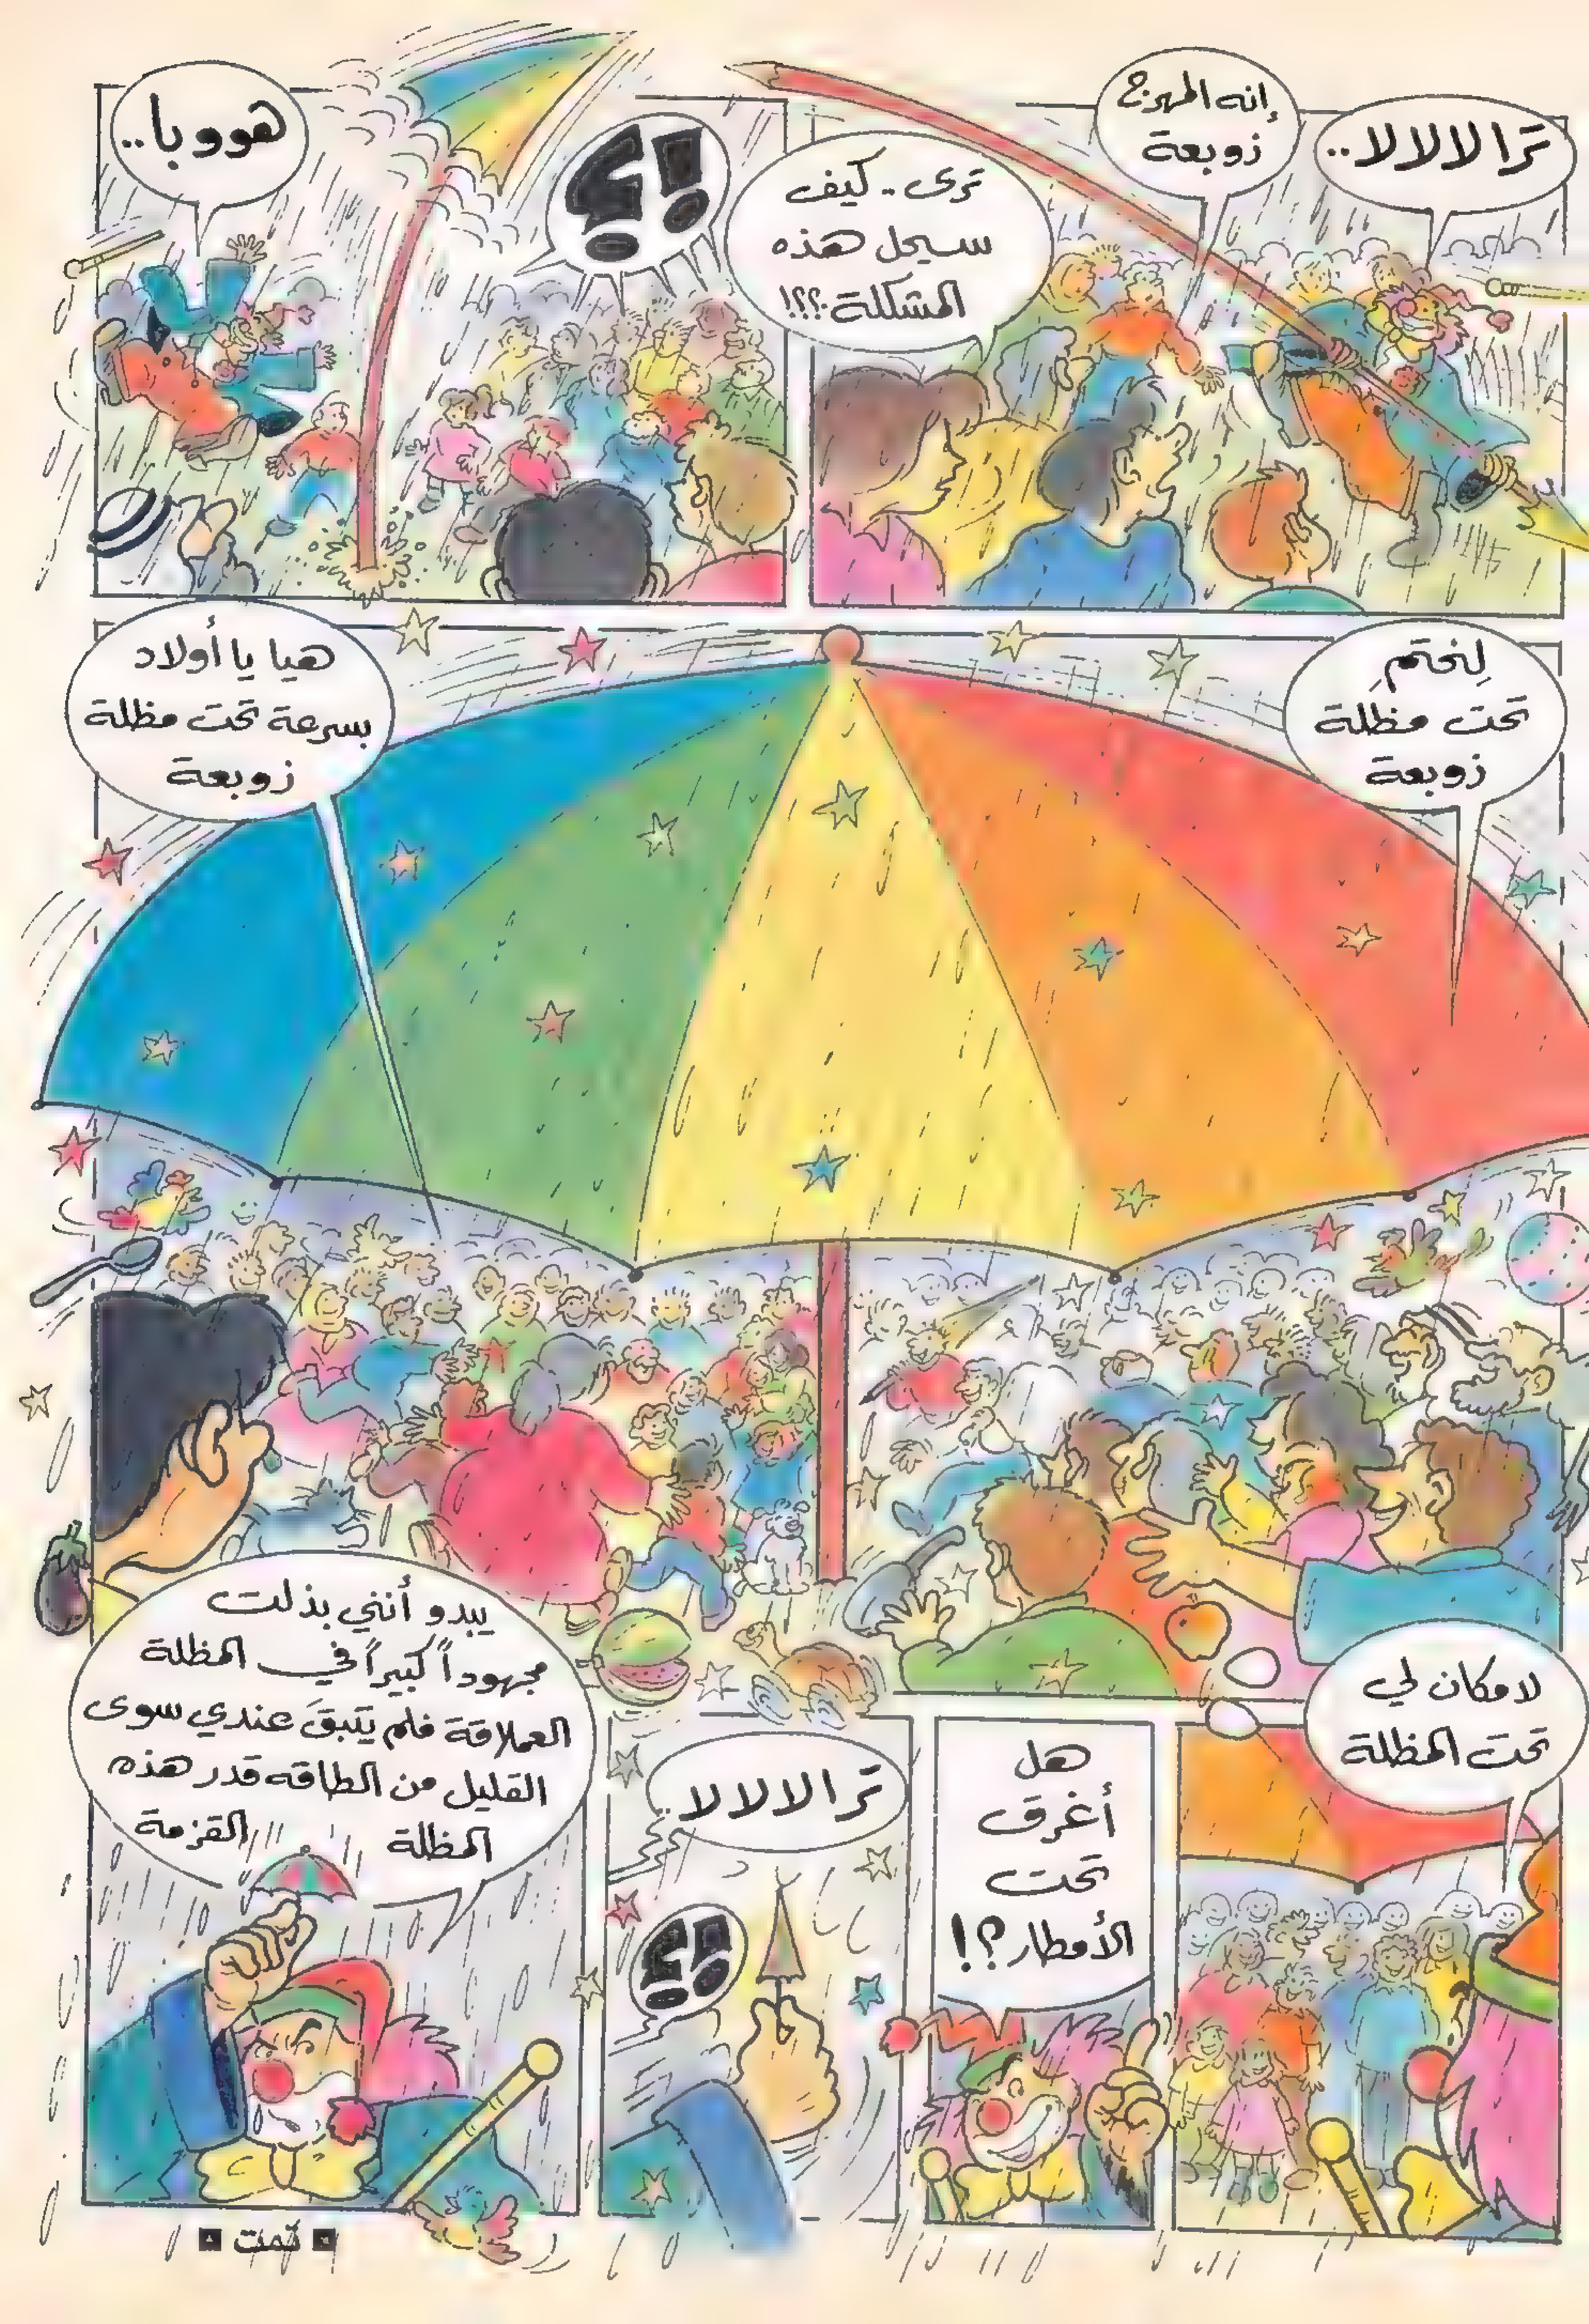 ترا لا لا لا..
إنه المهرج
زوبعة
ترى.. كيف
سيحل هذه
المشكلة؟؟!
!؟
هووبا..
لِنحتمِ
تحت مظلة
زوبعة
هيا يا أولاد
بسرعة تحت مظلة
زوبعة
لا مكان لي
تحت المظلة
هل
أغرق
تحت
الأمطار؟!
ترا لا لا لا..
!؟
يبدو أنني بذلت
مجهوداً كبيراً في المظلة
العملاقة فلم يتبقَ عندي سوى
القليل من الطاقه قدر هذه
المظلة القزمة
تمت